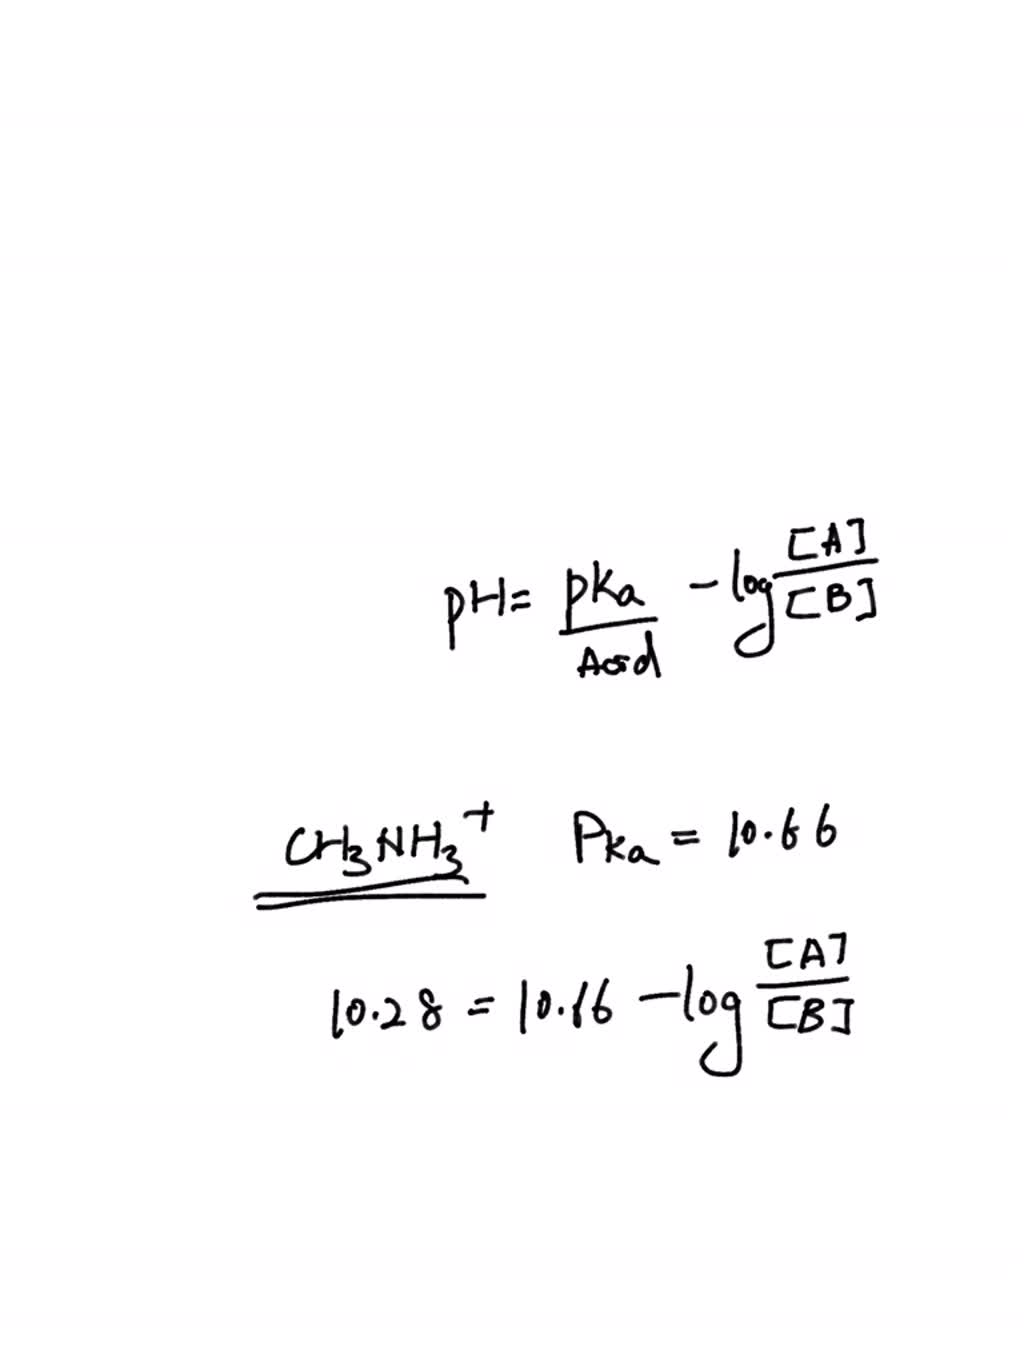 pH = pKa/Acid - log [A]/[B]
CH₃NH₃⁺ Pka = 10.66
10.28 = 10.66 - log [A]/[B]